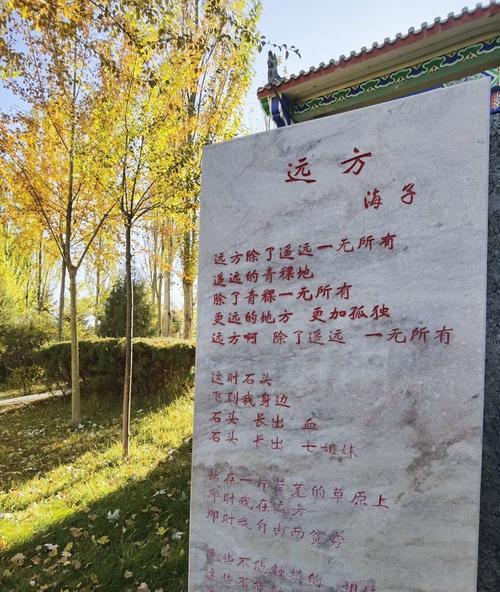 远方
海子
远方除了遥远一无所有
遥远的青稞地
除了青稞一无所有
更远的地方 更加孤独
远方啊 除了遥远 一无所有
这时石头
飞到我身边
石头 长出 血
石头 长出 七姐妹
站在一片荒芜的草原上
那时我在远方
那时我自由而贫穷
这些不能触摸的 姐妹
这些不能